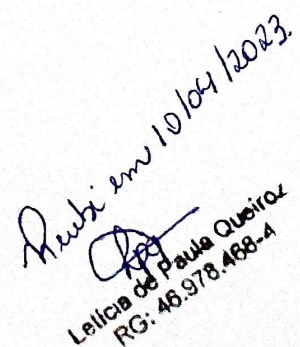 Recebi em 10/04/2023.
Leticia de Paula Queiroz
RG: 46.978.468-4